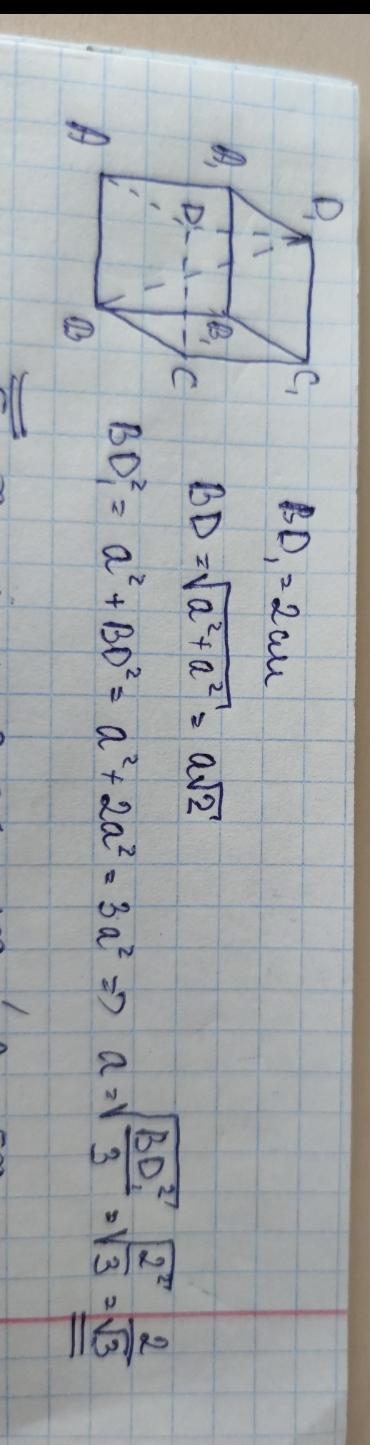 D₁
A₁
C₁
D
B₁
C
A
B
BD₁ = 2 см
BD = √(a² + a²) = a√2
BD₁² = a² + BD² = a² + 2a² = 3a² => a = √(BD₁²/3) = √(2²/3) = 2/√3